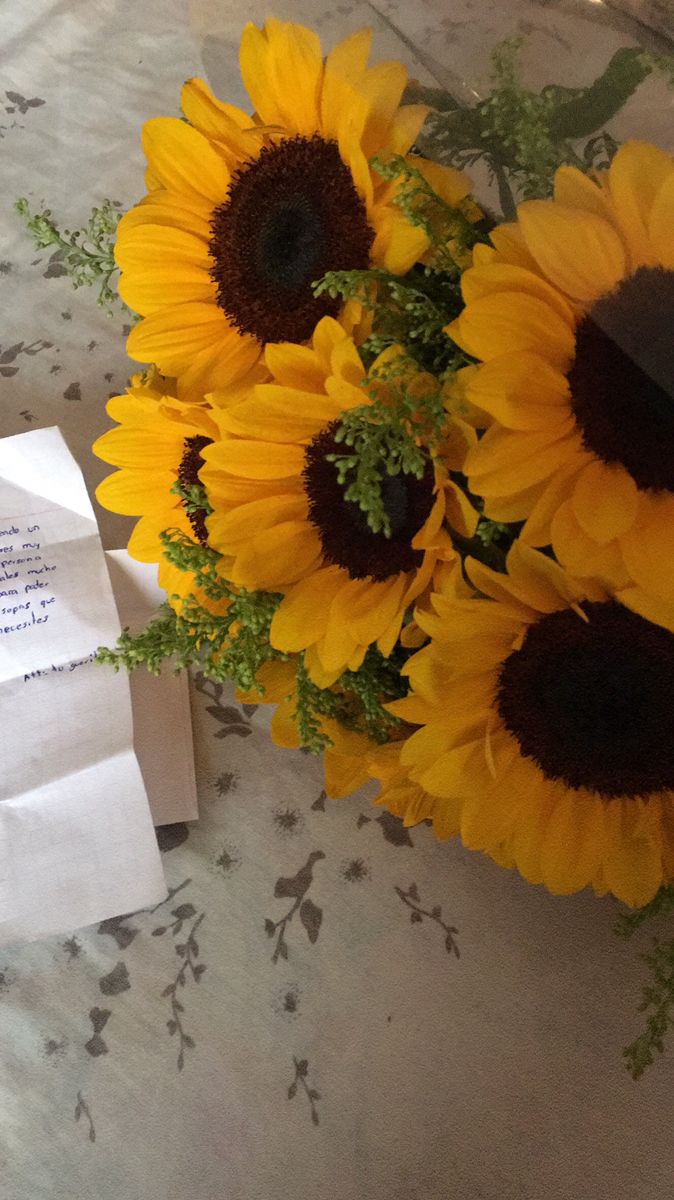 endo un
res muy
persona
ales mucho
para poder
sepas que
necesites
Att: tu